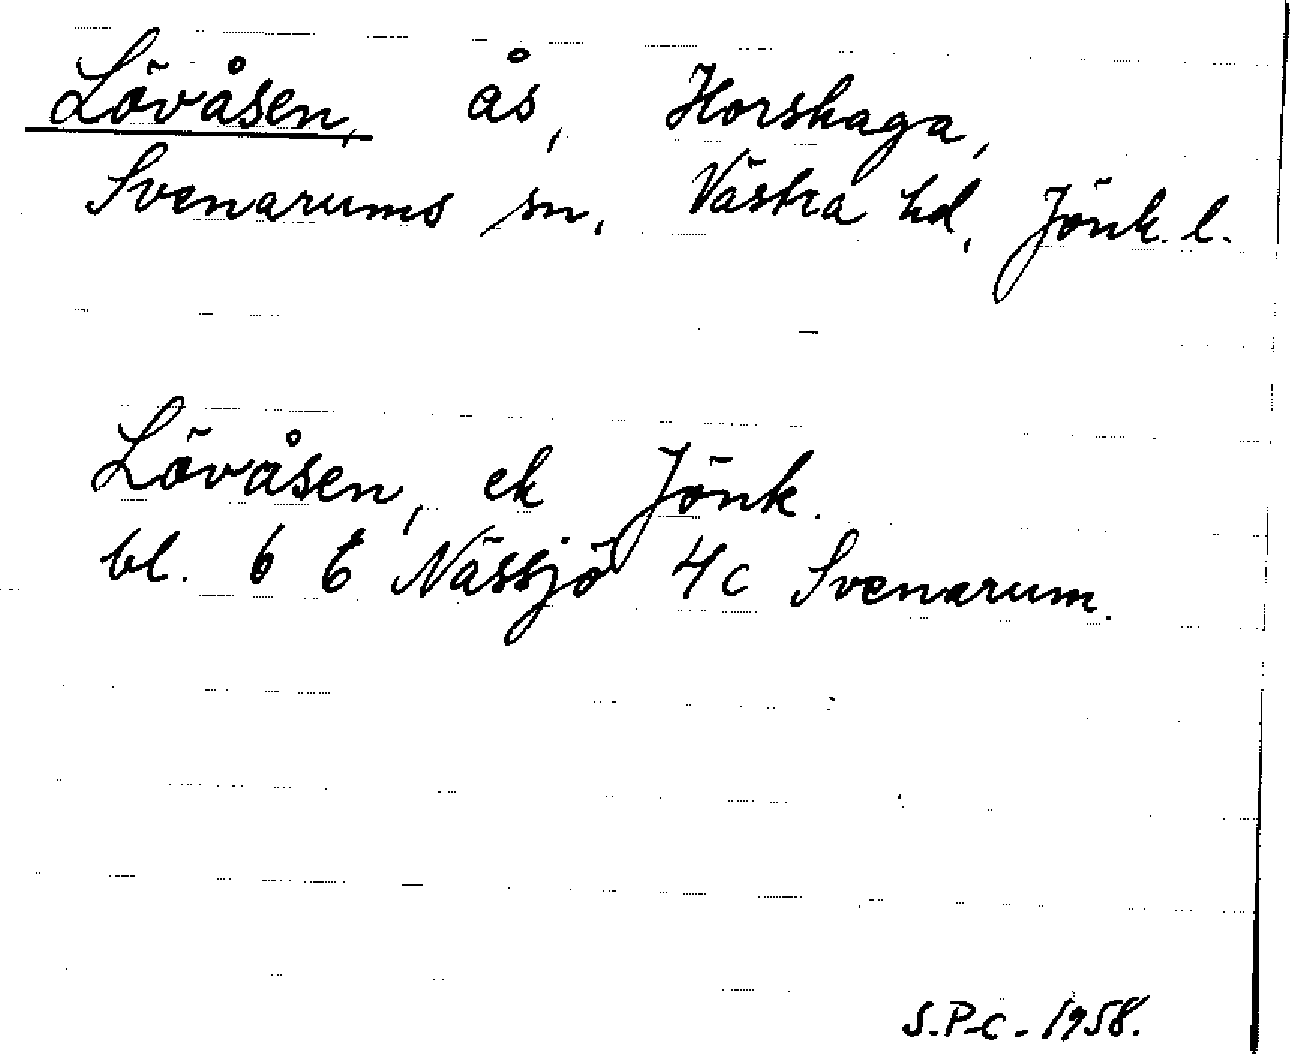 Lövåsen, ås, Horshaga,
Svenarums sn. Västra hd, Jönk. l.
Lövåsen, ek Jönk.
bl. 6 E Nässjö 4c Svenarum.
S.P.C. 1958.